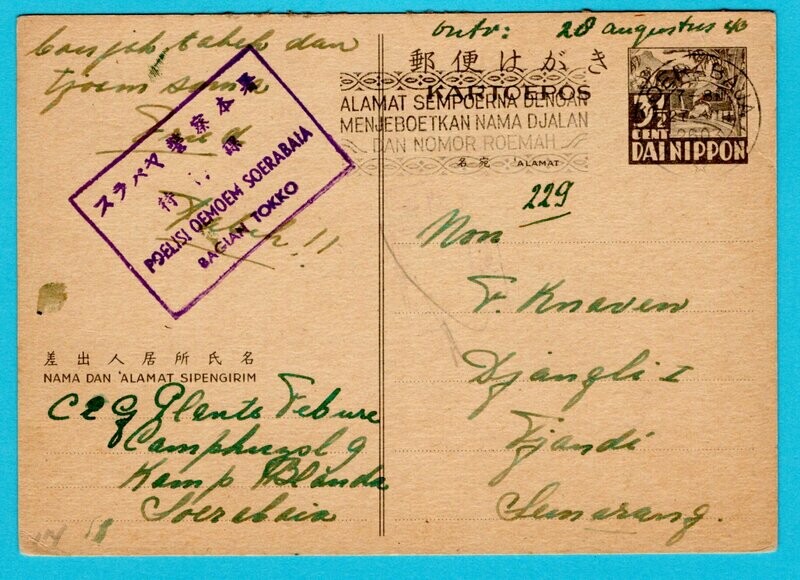 ontv: 28 augustus 43
郵便はがき
KARTOEPOS
ALAMAT SEMPOERNA DENGAN
MENJEBOETKAN NAMA DJALAN
DAN NOMOR ROEMAH
3½
CENT
DAI NIPPON
SOERABAJA
名宛 'ALAMAT
banjak tabeh dan
tjoem sama
スラバヤ警察本署
POELISI OEMOEM SOERABAIA
BAGIAN TOKKO
229
Non
F. Knaven
Djangli I
Tjandi
Semarang.
差出人居所氏名
NAMA DAN 'ALAMAT SIPENGIRIM
Febure
Camphuysl 9
Kamp Blanda
Soerabaia